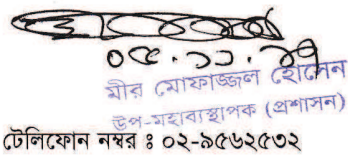 ০৫.১১.১৭
মীর মোফাজ্জল হোসেন
উপ-মহাব্যস্থাপক (প্রশাসন)
টেলিফোন নম্বর ঃ ০২-৯৫৬২৫৩২